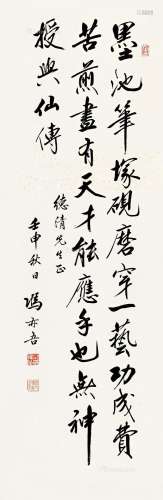 墨池筆塚硯磨穿一藝功成費
苦煎盡有天才能應手也無神
授與仙傳
德清先生正
壬申秋日馮亦吾